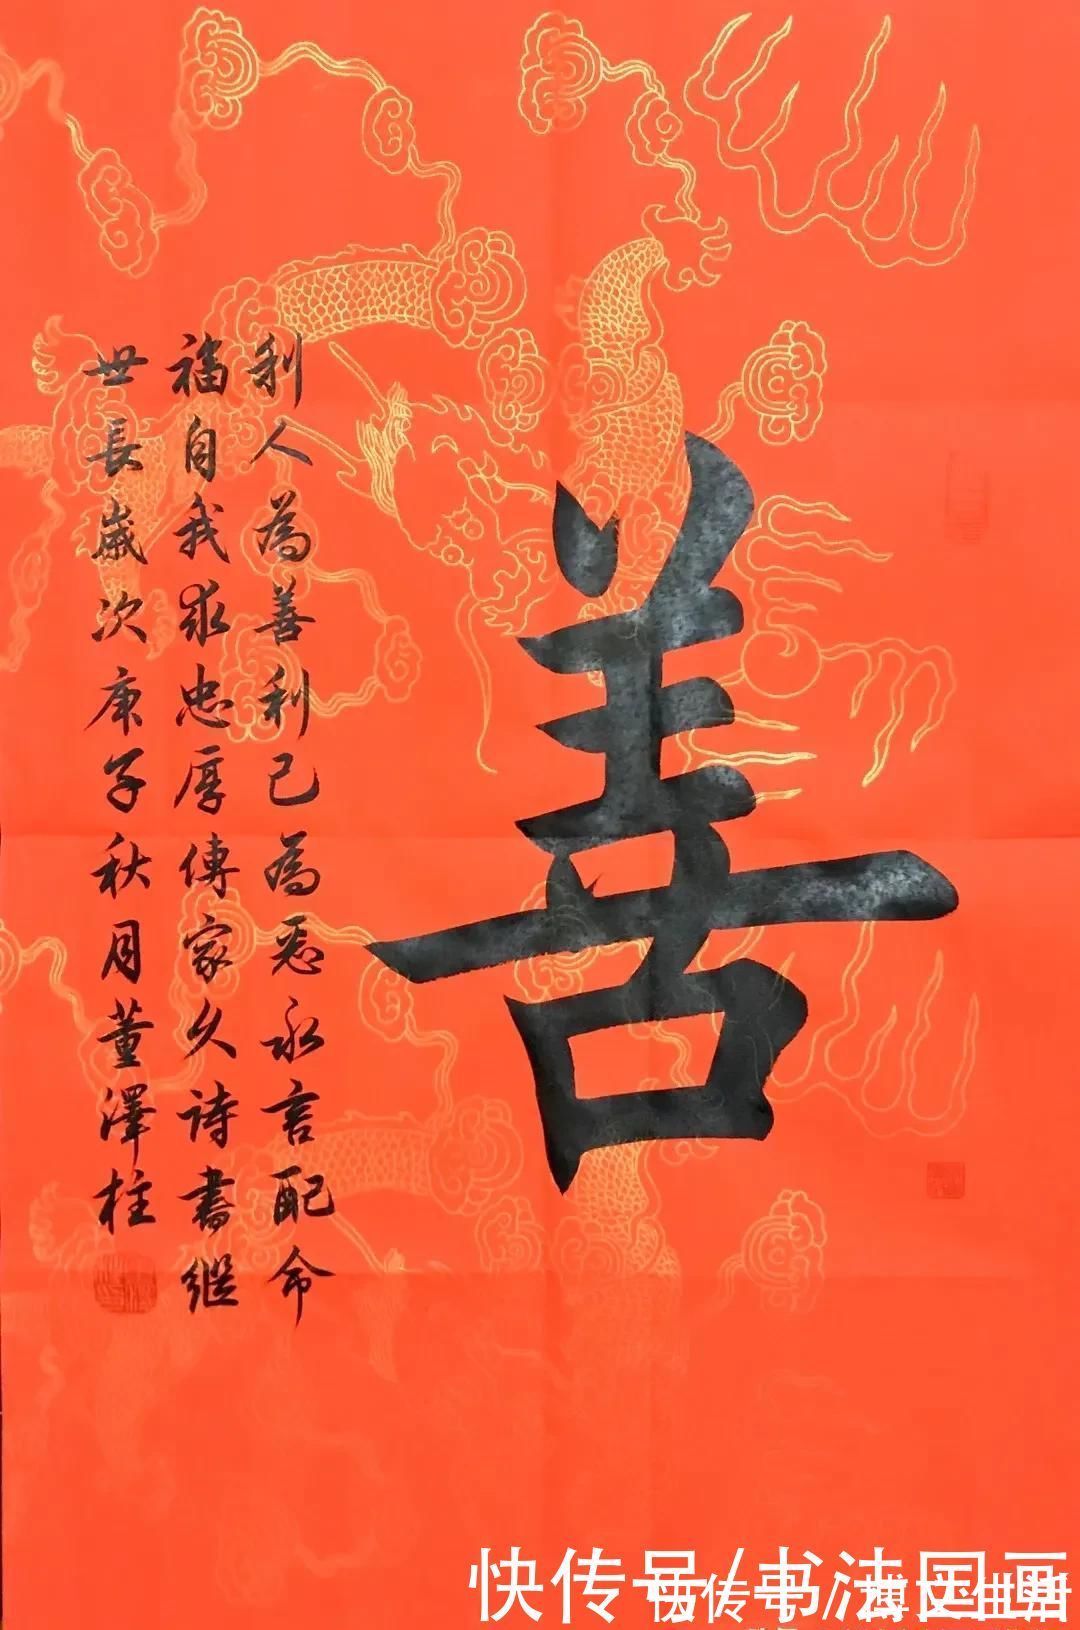 善
利人為善利己為惡永言配命
福自我求忠厚傳家久詩書繼
世長歲次庚子秋月董澤柱
快传号/书法国画